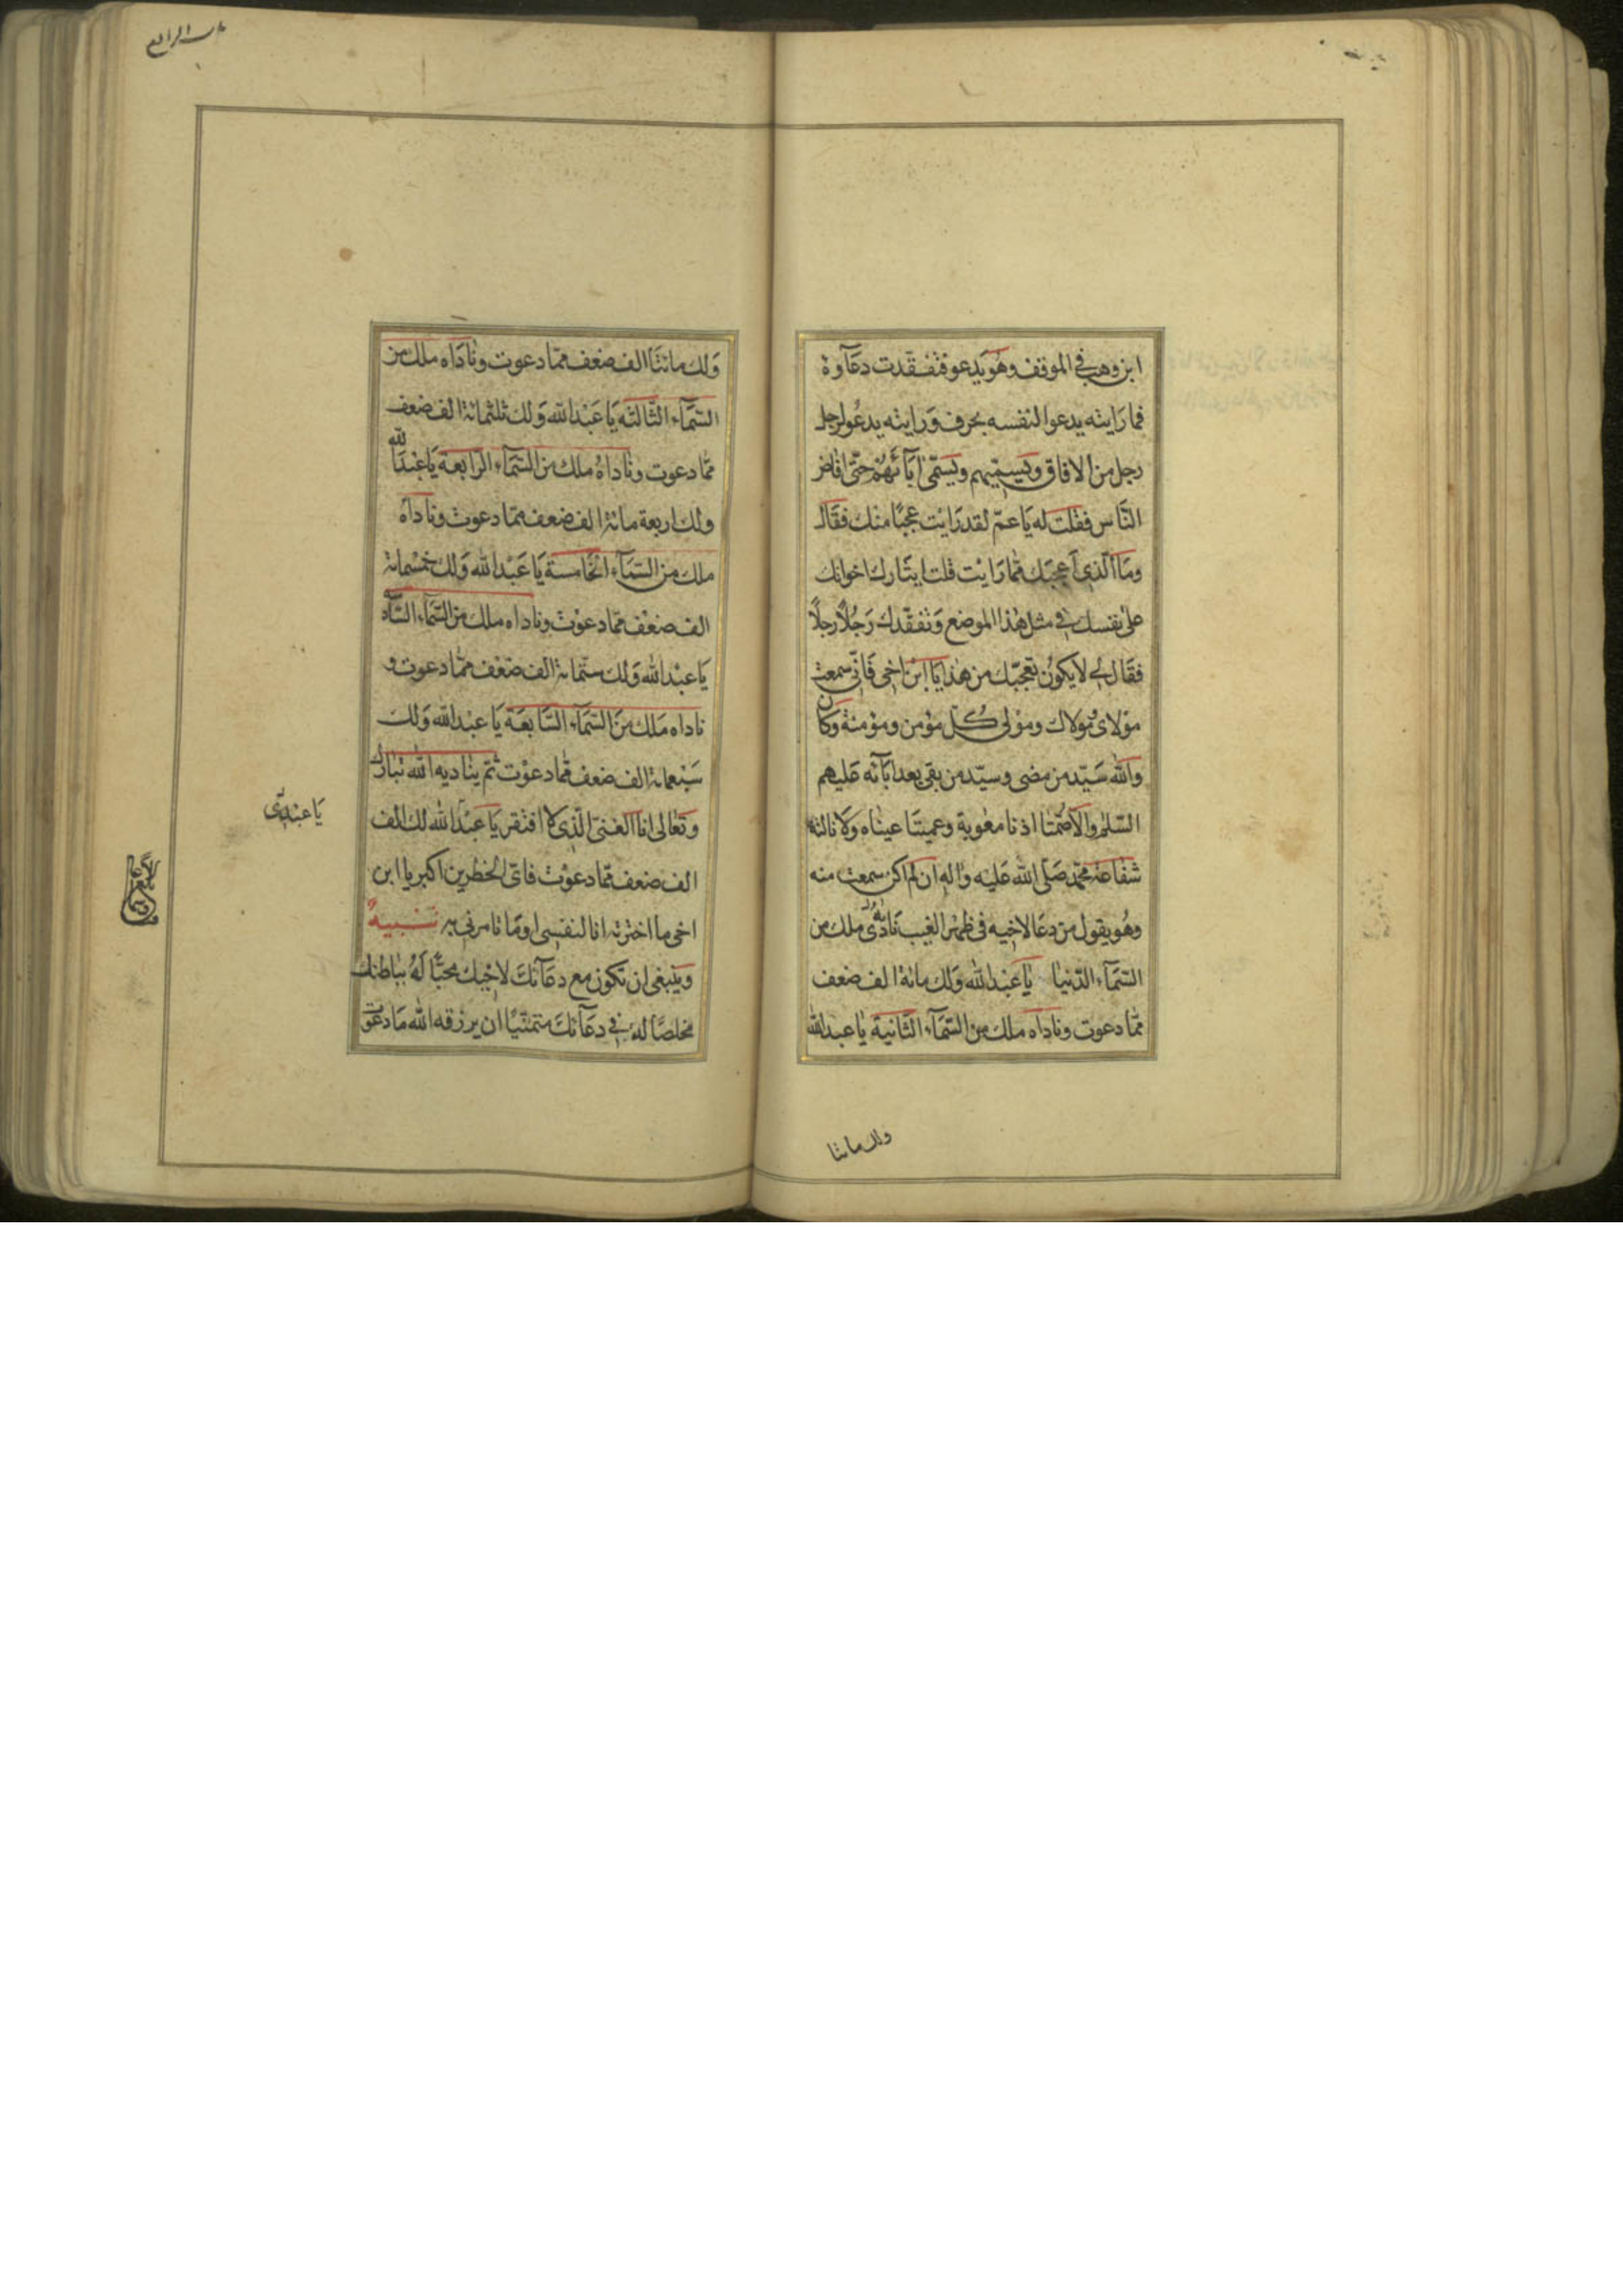 ابن وهب في الموقف وهُو يَدعو فتفقّدت دعَآوهُ
فما رَايته يدعوا لنفسه بحرف وَرايته يدعُو لرجل
رجل من الافاق ويسمّيهم ويسَمّى اٰبآئهُمْ حتّى افاض
النّاس فقلت له يَا عمّ لقد رَايت عجبًا منك فقال
ومَا الّذي اَعجبَك ممّا رَايْت قلت ايثارك اخوانك
على نفسك في مثل هٰذا الموضع وَتفقّدك رَجُلًا رجلًا
فقَال لي لا يكونُ تعجّبك من هٰذا يَا ابْن اخي فَانّي سمعت
مَوْلاى وُمولاك ومَوْلى كُلّ مؤمن ومؤمنة وَكان
والله سَيّد من مضى وسيّد من بقى بعد اٰبَآئه عَليهم
السّلٰم والّا صُمّتا اذنا معٰوية وعميتَا عينٰاه وَلا نالته
شفاعة محمّد صَلّى الله عَليْه واٰله ان لم اكن سمعت منه
وهُو يقول من دعَا لاخيه في ظهْر الغيب نَادٰى ملك من
السّمَآء الدّنيا يٰا عَبْد الله وَلك مائة الف ضعف
ممّا دعوت وناداه ملك من السّمَآء الثّانية يٰا عبد الله
ولك مائتا
باب الرابع
وَلك مائتَا الف ضعف ممّا دعوت ونٰادَاه ملك من
السّمَآء الثّالثه يَا عَبْد الله وَلك ثلثمائة الف ضعف
ممّا دعوت ونٰاداهُ ملك من السّمَآء الرّابعة يَا عَبْدَ الله
ولك اربعة مائة الف ضعف ممّا دعوت وناداهُ
ملك من السّمَآء الخٰامسة يَا عَبْد الله وَلك خمسْمائة
الف ضعْف ممّا دعوْت وناداه ملك من السّمآء السّادسة
يَا عبْد الله وَلك ستّمائة الف ضعْف ممّا دعوت و
ناداه مَلك منَ السّمَآء السّابعَة يَا عبْد الله وَلك
سَبْعمائة الف ضعف ممّا دعوْت ثمّ يناديه الله تبارك
وتعٰالى انا الغنىّ الّذي لا افتقر يَا عَبْدَ الله لك الف
يَا عبْدى
الف ضعف ممّا دعوْت فاىّ الخطرين اكبر يا ابن
اخى ما اخترته انا لنفسى او مَا تامرني به تنبيهٌ
وينبغى ان تكون مع دعَآئكَ لاخيك محبًّا لَهُ بباطنك
مخلصًا له في دعَآئكَ متمنّيًا ان يرزقه الله مَا دعوت